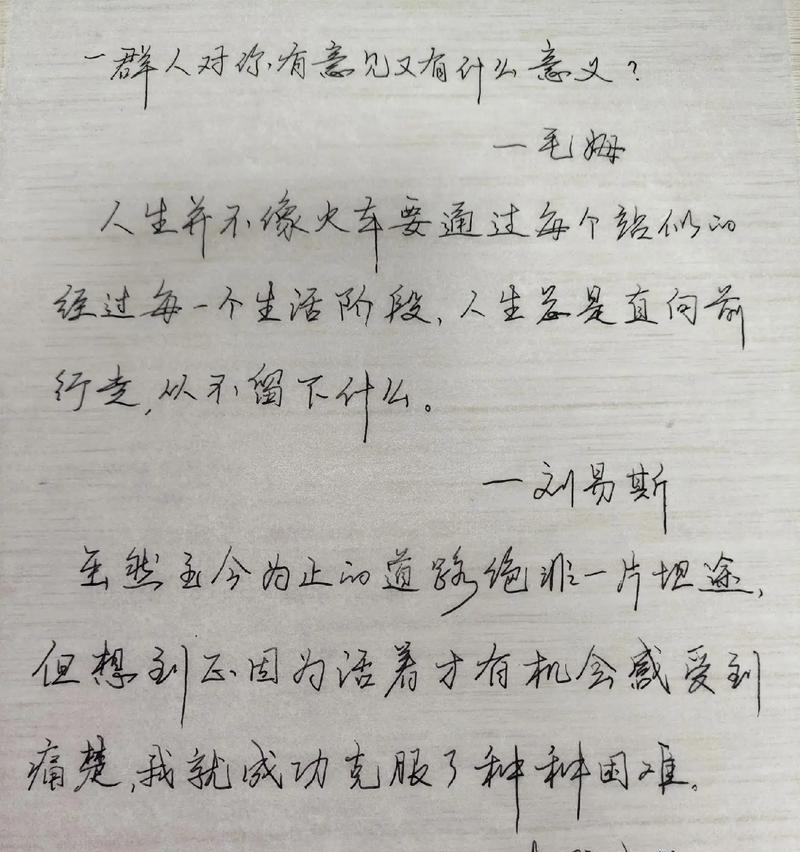 一群人对你有意见又有什么意义？
一毛姆
人生并不像火车要通过每个站似的
经过每一个生活阶段，人生总是直向前
行走，从不留下什么。
一刘易斯
虽然至今为止的道路绝非一片坦途，
但想到正因为活着才有机会感受到
痛楚，我就成功克服了种种困难。